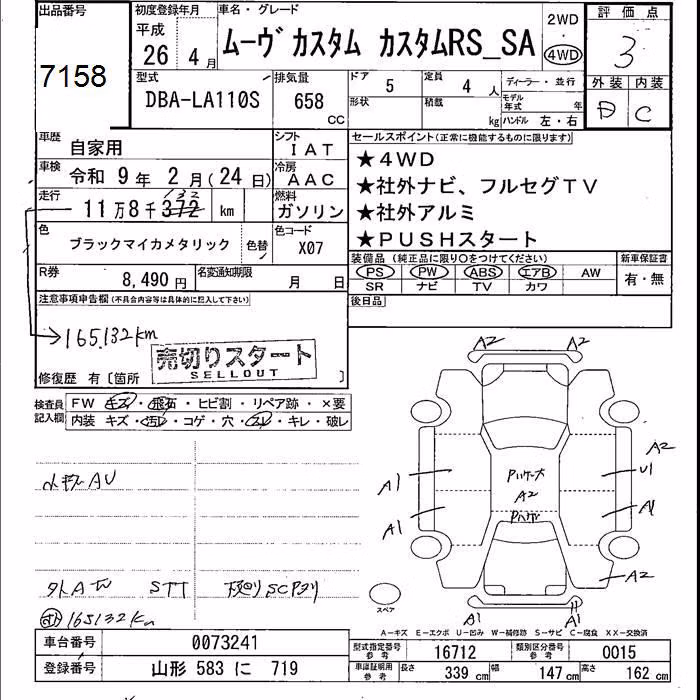 出品番号
7158
初度登録年月
平成
26 年 4 月
車名・グレード
ムーヴ カスタム カスタムRS_SA
2WD
・
4WD
評 価 点
3
外装 内装
D C
型式
DBA-LA110S
排気量
658
CC
ドア
5
定員
4 人
ディーラー・並行
形状
積載
kg
モデル年式
年
ハンドル 左・右
車歴
自家用
シフト
IAT
車検
令和 9 年 2 月 ( 24 日)
冷房
AAC
走行
11 万 8 千 372 km
132
燃料
ガソリン
色
ブラックマイカメタリック
色替
色コード
X07
R券
8,490 円
名変通知期限
月 日
セールスポイント(正常に機能するものに限ります)
★4WD
★社外ナビ、フルセグTV
★社外アルミ
★PUSHスタート
装備品 (純正品に限り○をつけてください)
PS PW ABS エアB AW
SR ナビ TV カワ
新車保証書
有・無
後日品
注意事項申告欄(不具合内容等は具体的に記入して下さい)
165,132km
売切りスタート
SELLOUT
修復歴 有〔箇所 〕
検査員記入欄
FW キズ・飛石・ヒビ割・リペア跡・×要
内装 キズ・汚レ・コゲ・穴・スレ・キレ・破レ
AU
外AW STT 下廻りSCサビ
165132km
A2 A2
A2
U1
A1
A1
A1
A2
A2
A1 A1
スペア
A-キズ E-エクボ U-凹み W-補修跡 S-サビ C-腐食 XX-交換済
車台番号
0073241
登録番号
山形 583 に 719
型式指定番号 参考
16712
類別区分番号 参考
0015
車庫証明用 参考
長さ 339 cm 幅 147 cm 高さ 162 cm